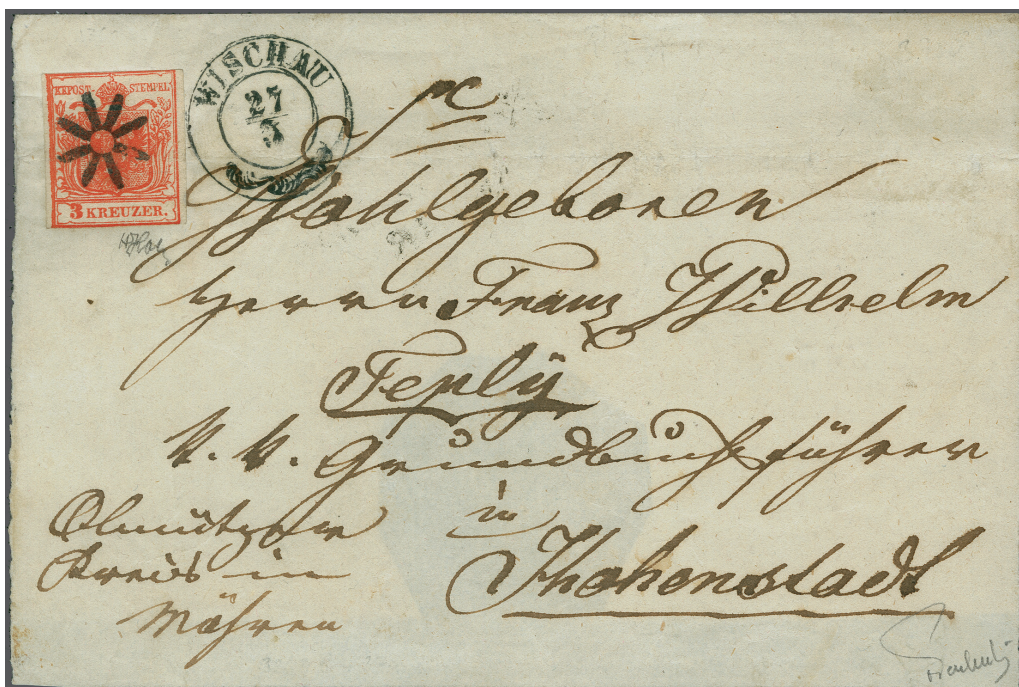 KKPOST-STEMPEL
3 KREUZER.
WISCHAU
27
3
Wohlgeboren
Herrn Franz Wilhelm
Teplÿ
k. k. Grundbuchsführer
in
Hohenstadt
Olmützer
Kreis in
Mähren